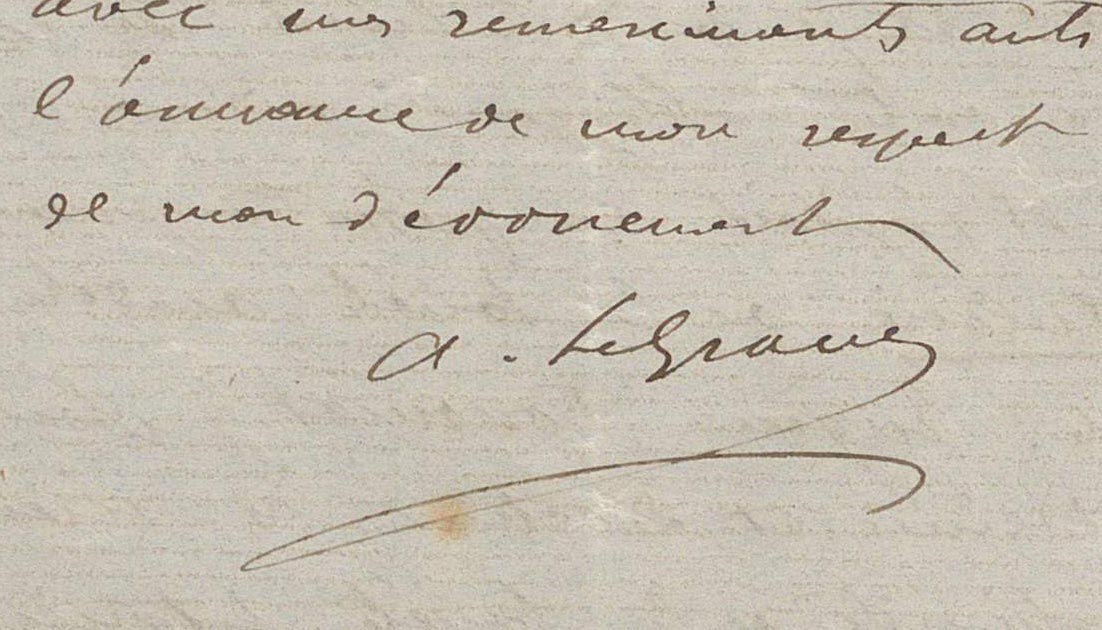 avec mes remerciments anti
l'assurance de mon respect
et mon dévouement
A. LeGrave